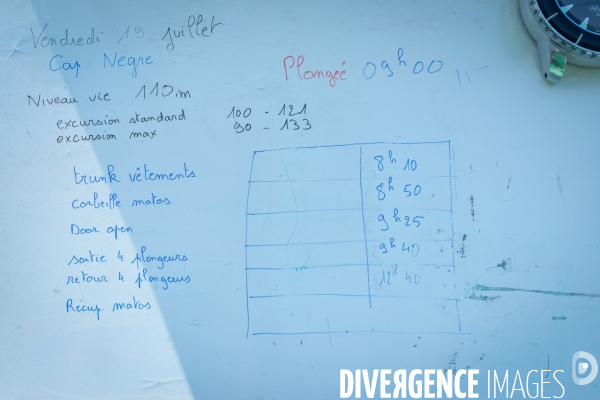 Vendredi 19 Juillet
Cap Nègre
Plongée 09h00
Niveau vie 110m
excursion standard 100 - 121
excursion max 90 - 133
trunk vêtements 8h 10
corbeille matos 8h 50
Door open 9h 25
sortie 4 plongeurs 9h 40
retour 4 plongeurs 12h 40
Récup. matos
DIVERGENCE IMAGES